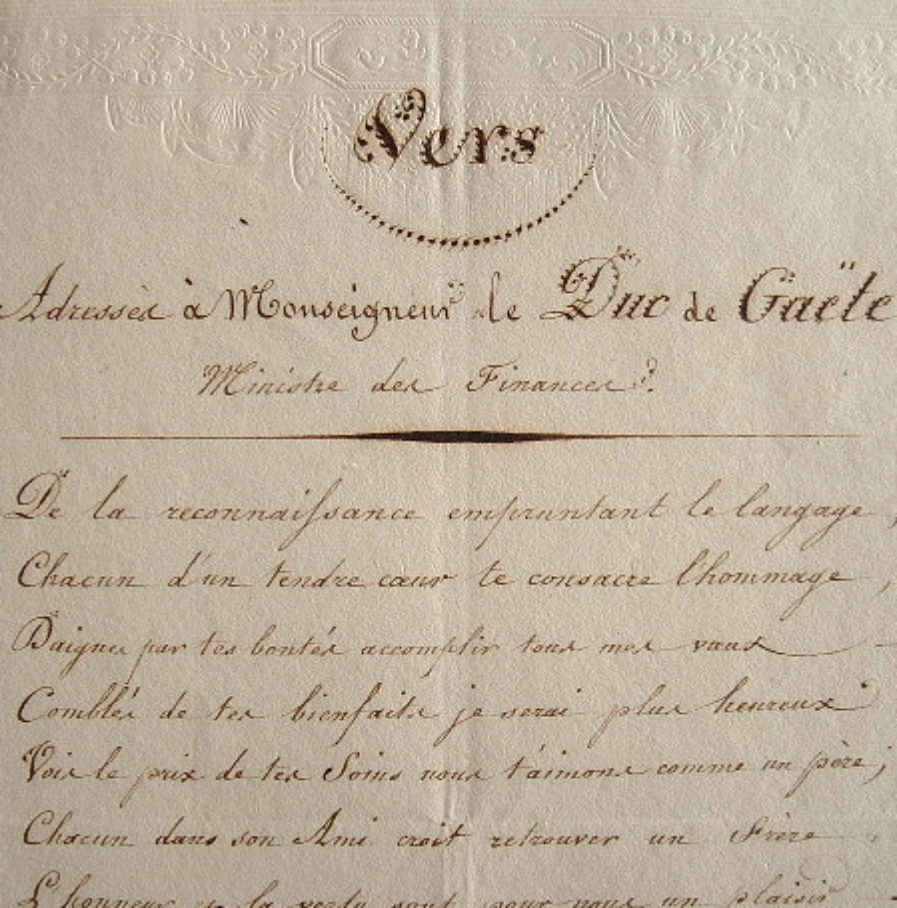 Vers
Adressés à Monseigneur le Duc de Gaëte
Ministre des Finances.
De la reconnaissance empruntant le langage,
Chacun d'un tendre cœur te consacre l'hommage,
Daignes par tes bontés accomplir tous mes vœux
Comblés de tes bienfaits je serai plus heureux
Vois le prix de tes Soins nous t'aimons comme un père;
Chacun dans son Ami croit retrouver un Frère.
L'honneur la vertu sont pour nous un plaisir